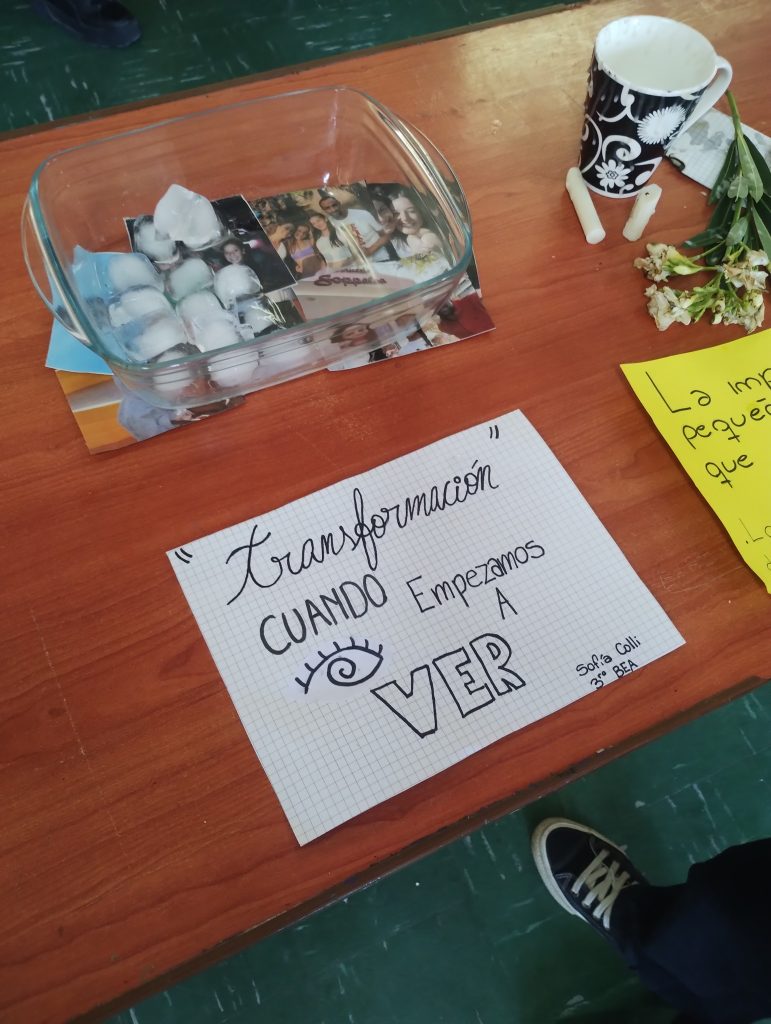 "transformación"
CUANDO Empezamos
A
VER
Sofía Colli
3ro BEA
La imp
pequeñ
que
.Lo